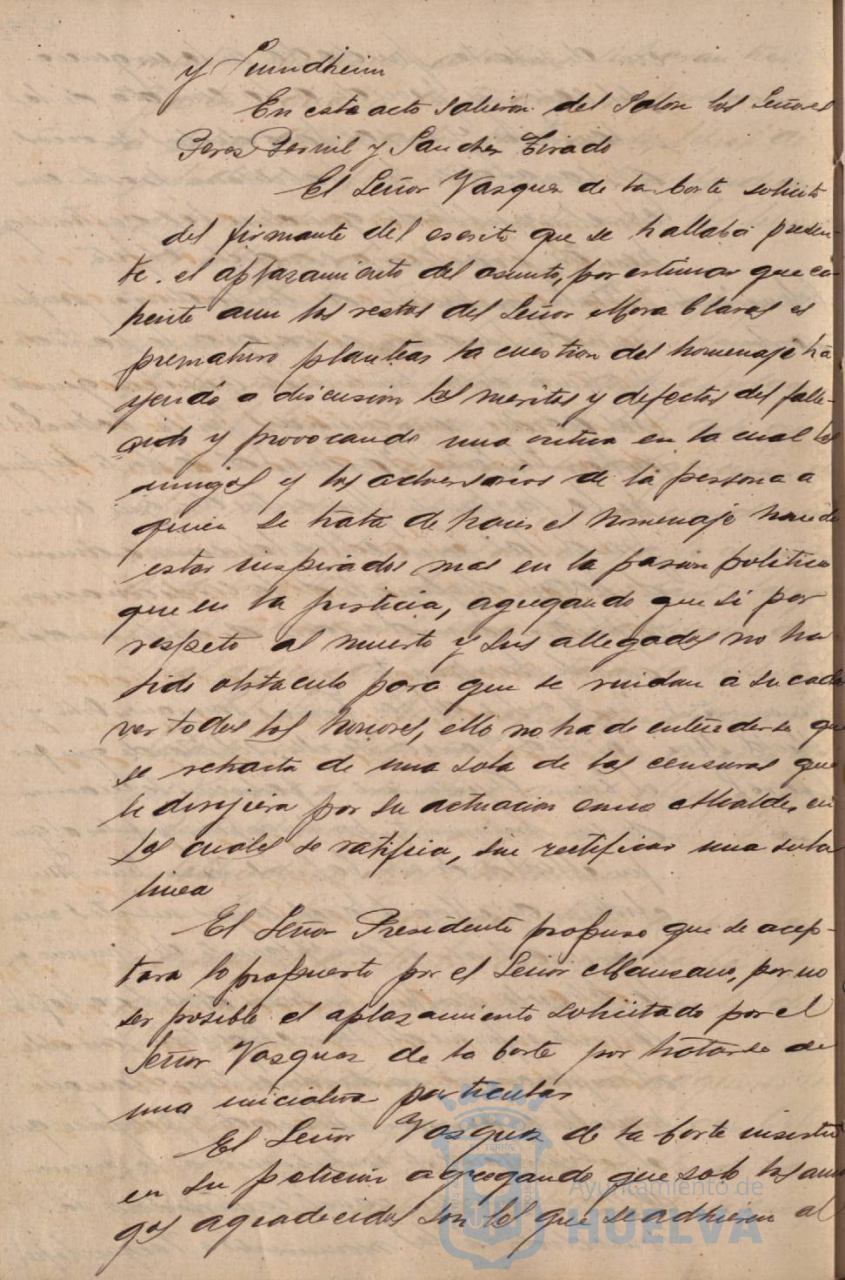 y Sundheim
En este acto salieron del Salon los Señores
Peres Bernil y Sanchez Tirado
El Señor Vasquez de la Corte solicitó
del firmante del escrito que se hallaba presen-
te. el aplazamiento del asunto, por estimar que ca-
liente aun los restos del Señor Mora Claros es
prematuro plantear la cuestion del homenaje tra
yendo a discusion los meritos y defectos del falle-
cido y provocando una critica en la cual los
amigos y los adversarios de la persona a
quien se trata de hacer el homenaje han de
estar inspirados mas en la pasion politica
que en la justicia, agregando que si por
respeto al muerto y sus allegados no ha
sido obstaculo para que se rindan á su cada
ver todos los honores, ello no ha de entenderse que
se retracta de una sola de las censuras que
le dirijiera por su actuacion como Alcalde, en
las cuales se ratifica, sin rectificar una sola
linea
El Señor Presidente propuso que se acep-
tara lo propuesto por el Señor Manzano, por no
ser posible el aplazamiento solicitado por el
Señor Vasquez de la Corte por tratarse de
una iniciativa particular
El Señor Vasquez de la Corte insistió
en su peticion agregando que solo los ami
gos agradecidos son los que se adhieren al
Ayuntamiento de
HUELVA